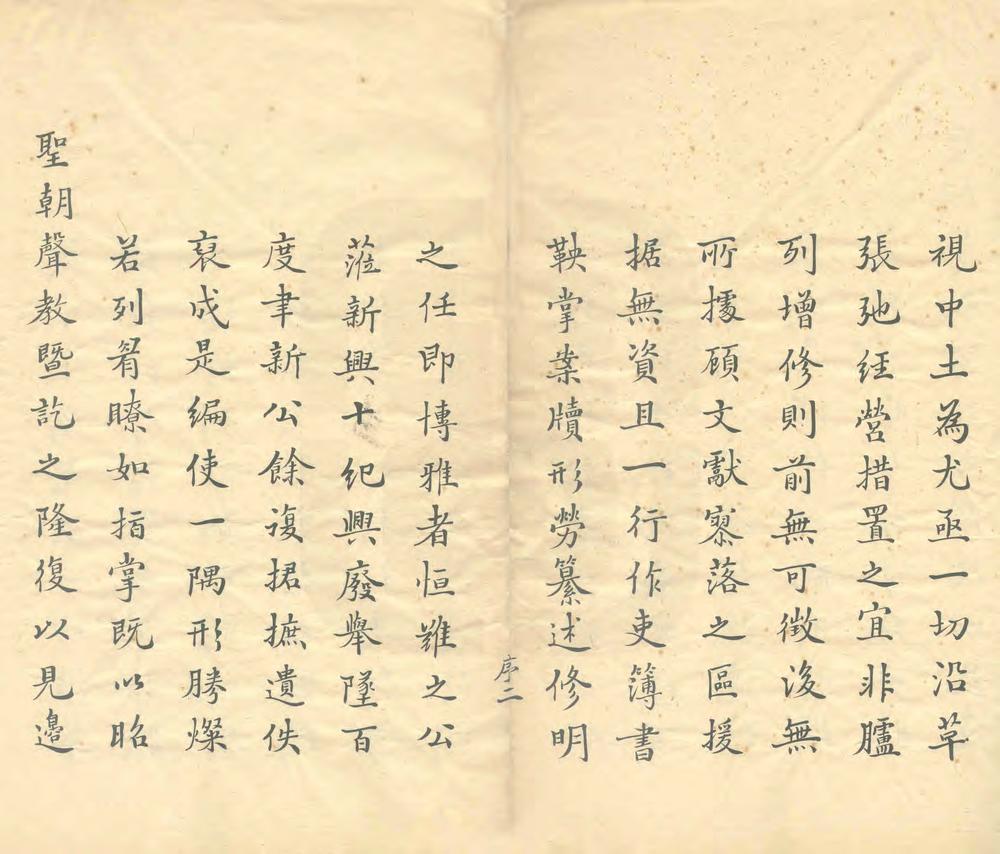 視中土為尤亟一切沿革
張弛經營措置之宜非臚
列增修則前無可徴後無
所據顧文獻寥落之區援
据無資且一行作吏簿書
鞅掌案牘形勞纂述修明
序二
之任即博雅者恒難之公
蒞新興十紀興廢舉墜百
度聿新公餘複捃摭遺佚
裒成是編使一隅形勝燦
若列眉瞭如指掌既以昭
聖朝聲教暨訖之隆復以見邊